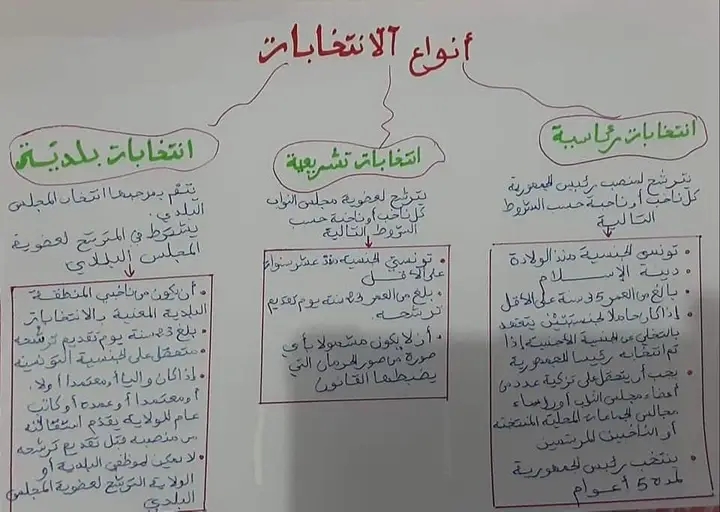 أنواع الانتخابات
انتخابات رئاسية
يترشح لمنصب رئيس الجمهورية
كل ناخب أو ناخبة حسب الشروط
التالية
تونسي الجنسية منذ الولادة
دينه الإسلام
بالغ من العمر 35 سنة على الأقل
إذا كان حاملا لجنسيتين يتعهد
بالتخلي عن الجنسية الأجنبية إذا
تم انتخابه رئيسا للجمهورية
يجب أن يتحصل على تزكية عدد من
أعضاء مجلس النواب أو رؤساء
مجالس الجماعات المحلية المنتخبة
أو الناخبين المرسمين
ينتخب رئيس الجمهورية
لمدة 5 أعوام
انتخابات تشريعية
يترشح لعضوية مجلس النواب
كل ناخب أو ناخبة حسب
الشروط التالية
تونسي الجنسية منذ عشر سنوات
على الأقل
بلغ من العمر 23 سنة يوم تقديم
ترشحه
أن لا يكون مشمولا بأي
صورة من صور الحرمان التي
يضبطها القانون
انتخابات بلدية
تتم بموجبها انتخاب المجلس
البلدي.
يشترط في المترشح لعضوية
المجلس البلدي
أن يكون من ناخبي المنطقة
البلدية المعنية بالانتخابات
بلغ 23 سنة يوم تقديم ترشحه
متحصل على الجنسية التونسية
إذا كان واليا أو معتمدا أولا
أو معتمدا أو عمدة أو كاتب
عام للولاية يقدم استقالته
من منصبه قبل تقديم ترشحه
لا يمكن لموظفي البلدية أو
الولاية الترشح لعضوية المجلس
البلدي